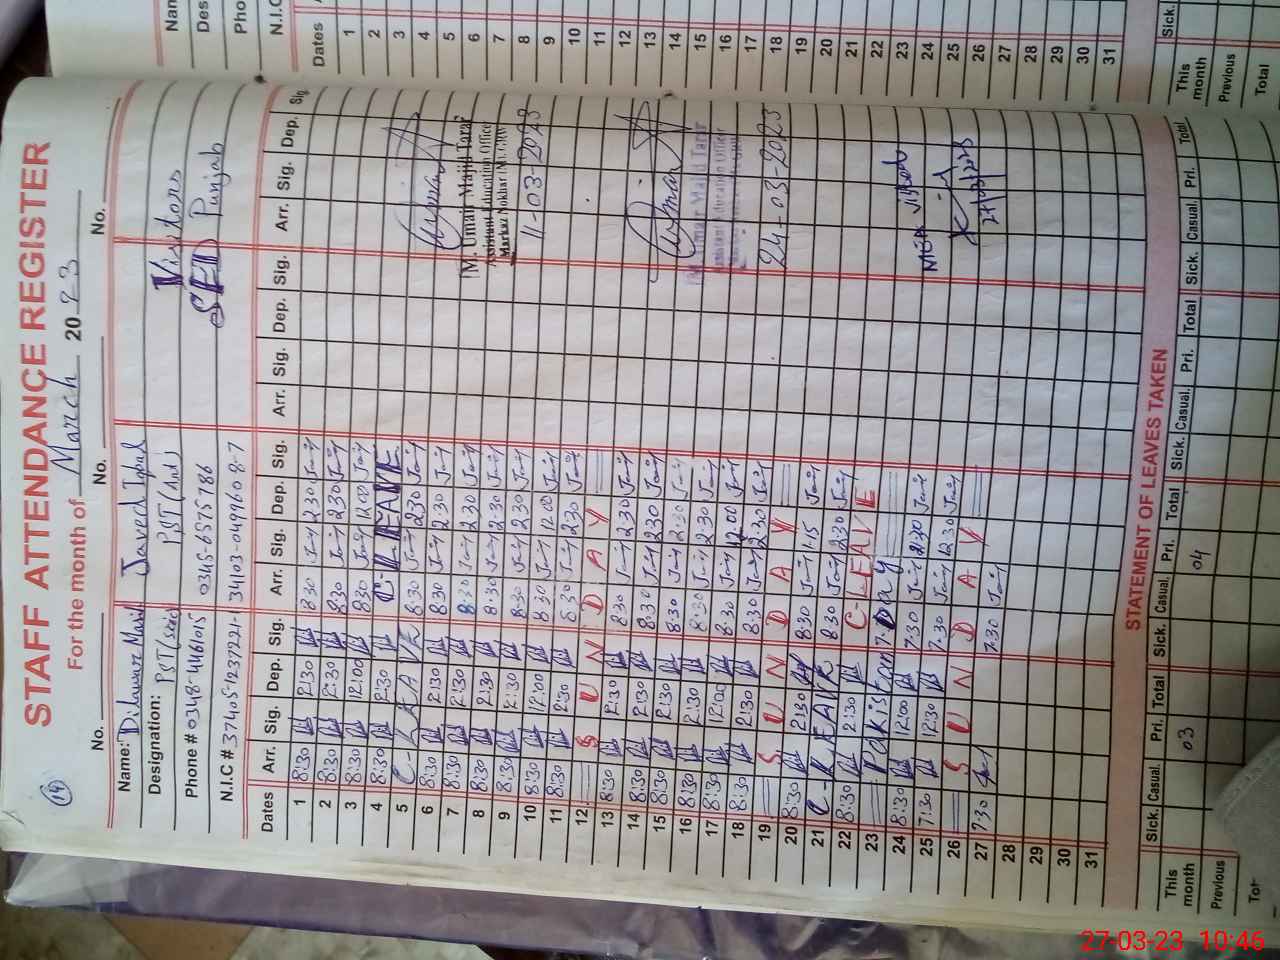 STAFF ATTENDANCE REGISTER
For the month of March 2023
No. No. No. No.
Name: Dilawar Javed Iqbal Visitors
Designation: PST PST SED Punjab
Phone # 0348-4461015 0345-6575786
N.I.C # 37405-1237221-1 34103-0499608-7
Dates Arr. Sig. Dep. Sig. Arr. Sig. Dep. Sig. Arr. Sig. Dep. Sig. Arr. Sig. Dep. Sig.
1 8:30 2:30 8:30 2:30
2 8:30 2:30 8:30 2:30
3 8:30 12:00 8:30 12:00
4 8:30 2:30 C-LEAVE
5 C-LEAVE 8:30 2:30
6 8:30 2:30 8:30 2:30
7 8:30 2:30 8:30 2:30
8 8:30 2:30 8:30 2:30
9 8:30 2:30 8:30 2:30
10 8:30 12:00 8:30 12:00
11 8:30 2:30 8:30 2:30
12 SUNDAY
13 8:30 2:30 8:30 2:30
14 8:30 2:30 8:30 2:30
15 8:30 2:30 8:30 2:30
16 8:30 2:30 8:30 2:30
17 8:30 12:00 8:30 12:00
18 8:30 2:30 8:30 2:30
19 SUNDAY
20 8:30 2:30 8:30 1:15
21 C-LEAVE 8:30 2:30
22 8:30 2:30 C-LEAVE
23 Pakistan Day
24 8:30 12:00 7:30 2:30
25 7:30 12:30 7:30 12:30
26 SUNDAY
27 7:30 7:30
28
29
30
31
M. Umar Majid Tarar
Assistant Education Officer
Markaz Nokhar
11-03-2023
M. Umar Majid Tarar
Assistant Education Officer
24-03-2023
MEA visited
27/03/2023
STATEMENT OF LEAVES TAKEN
Sick. Casual. Pri. Total Sick. Casual. Pri. Total Sick. Casual. Pri. Total Sick. Casual. Pri. Total
This month 03 04
Previous
Dates
1
2
3
4
5
6
7
8
9
10
11
12
13
14
15
16
17
18
19
20
21
22
23
24
25
26
27
28
29
30
31
Sick.
This month
Previous
Total
27-03-23 10:46